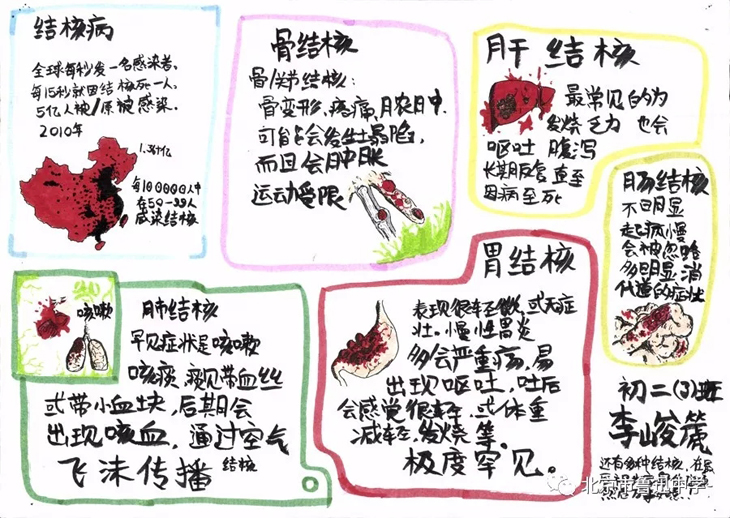 结核病
全球每秒发一名感染者.
每15秒就因结核死一人,
5亿人被/原被感染.
2010年
1.3亿
每100000人中
在50-99人
感染结核
骨结核
骨/关节结核:
骨变形,疼痛,月农月中,
可能会发生塌陷,
而且会肿胀
运动受限
肝结核
最常见的为
发烧乏力 也会
呕吐 腹泻
长期反复直至
因病至死
肠结核
不明显
起病慢
会被忽略
多明显消
化道的症壮
咳嗽
肺结核
罕见症状是咳嗽
咳痰,痰见带血丝
或带小血块,后期会
出现咳血,通过空气
飞沫传播
结核
胃结核
表现很轻微,或无症
壮.慢性胃炎
多会严重疡,易
出现呕吐,吐后
会感觉很轻,或体重
减轻,发烧等.
极度罕见。
初二(3)班
李峻篪
还有多种结核,在
北京市鲁迅中学